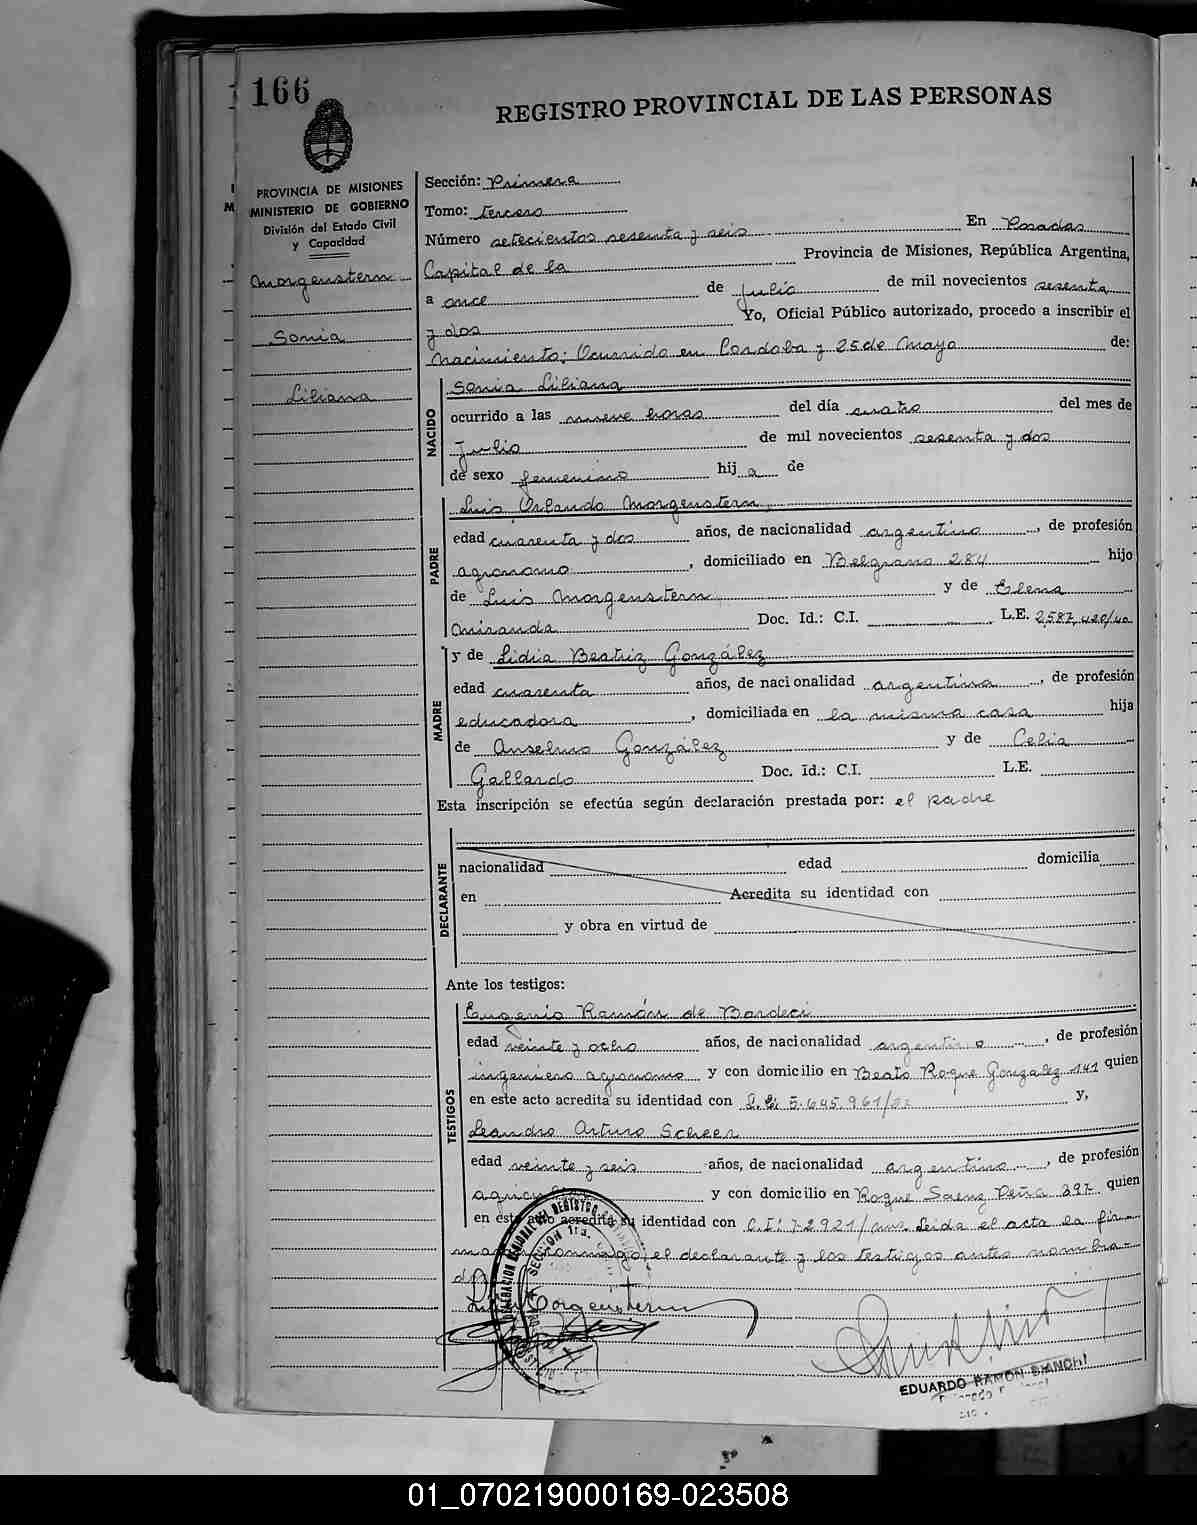 166
REGISTRO PROVINCIAL DE LAS PERSONAS
PROVINCIA DE MISIONES
MINISTERIO DE GOBIERNO
División del Estado Civil
y Capacidad
Morgenstern
Sonia
Liliana
Sección: Primera
Tomo: tercero
Número setecientos sesenta y seis En Posadas
Capital de la Provincia de Misiones, República Argentina,
a once de julio de mil novecientos sesenta
y dos Yo, Oficial Público autorizado, procedo a inscribir el
nacimiento: Ocurrido en Cordoba y 25 de Mayo de:
NACIDO
Sonia Liliana
ocurrido a las nueve horas del día cuatro del mes de
Julio de mil novecientos sesenta y dos
de sexo femenino hij a de
PADRE
Luis Orlando Morgenstern
edad cuarenta y dos años, de nacionalidad argentino, de profesión
agronomo, domiciliado en Belgrano 284 hijo
de Luis Morgenstern y de Elena
Miranda Doc. Id.: C.I. L.E. 2,587,420/40
MADRE
y de Lidia Beatriz González
edad cuarenta años, de nacionalidad argentina, de profesión
educadora, domiciliada en la misma casa hija
de Anselmo González y de Celia
Gallardo Doc. Id.: C.I. L.E.
Esta inscripción se efectúa según declaración prestada por: el padre
DECLARANTE
nacionalidad edad domicilia
en Acredita su identidad con
y obra en virtud de
Ante los testigos:
TESTIGOS
Eugenio Ramón de Bardeci
edad veinte y ocho años, de nacionalidad argentino, de profesión
ingeniero agronomo y con domicilio en Beato Roque Gonzalez 141 quien
en este acto acredita su identidad con 5.645.961/ y,
Leandro Arturo Scheer
edad veinte y seis años, de nacionalidad argentino, de profesión
y con domicilio en Roque Saenz Peña 397 quien
en este acto acredita su identidad con C.I: 72921/mns. Leida el acta la fir-
man conmigo, el declarante y los testigos antes nombra-
dos
DELEGACION REGIONAL DEL REGISTRO
SECCION 1ra.
EDUARDO RAMON BIANCHI
01_070219000169-023508